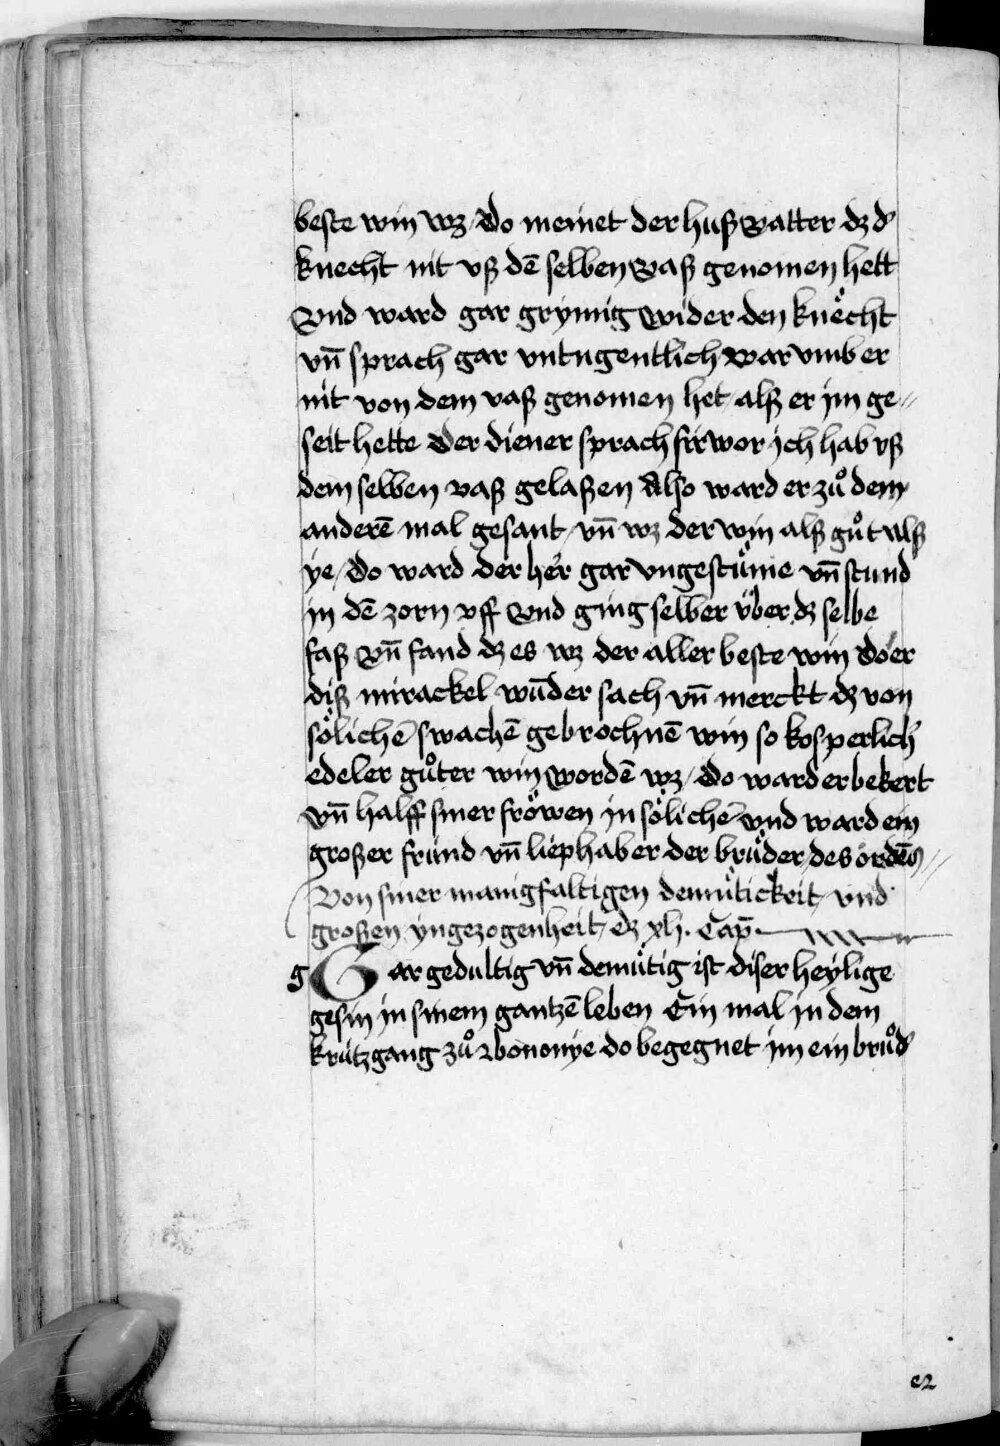 beste win wz / do meinet der hußvatter dz dʼ
knecht nit vß dē selben vaß genomen hett
Vnd ward gar grymig wider den knecht
vn̄ sprach gar vntugentlich war vmb er
nit von dem vaß genomen het alß er jm ge⸗
seit hette der diener sprach fürwor ich hab vß
dem selben vaß gelaßen Also ward er zuͦ dem
anderē mal gesant / vn̄ wz der win alß guͦt alß
ye / do ward der her gar vngestüme vn̄ stund
in dē zorn vff Vnd ging selber über dz selbe
faß vn̄ fand dz es wz der aller beste win do er
diß mirackel wūder sach vn̄ merckt dz von
sölichē swachē gebrochnē win so kosperlich
edeler guͦter win wordē wz / do ward er bekert
vn̄ halff siner fröwen in sölichē vnd ward ein
großer fründ vn̄ liephaber der brüder des ordēs
Von siner manigfaltigen demütickeit / vnd
großen yngezogenheit / dz xlj. Cap̄
g Gar gedultig vn̄ demütig ist diser heylige
gesin in sinem gantzē leben Ein mal in dem
krützgang zuͦ bononye do begegnet im ein bruͦdʼ
e2